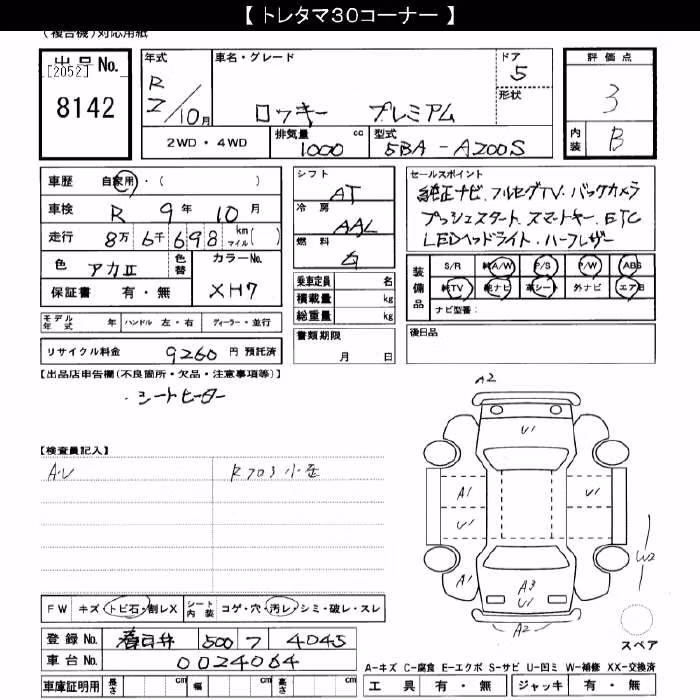 【 トレタマ30コーナー 】
(複合機)対応用紙
出品No. [2052] 8142
年式 R 2/10月
車名・グレード ロッキー プレミアム
ドア 5
形状
評価点 3
内装 B
2WD・4WD
排気量 1000 cc
型式 5BA-A200S
車歴 自家用・( )
車検 R 9年 10月
走行 8万 6千 698 km マイル( )
色 アカⅡ 色替
カラーNo. XH7
保証書 有・無
モデル年式 年 ハンドル 左・右 ディーラー・並行
リサイクル料金 9260 円 預託済
シフト AT
冷房 AAC
燃料
乗車定員 名
積載量 kg
総重量 kg
書類期限 月 日
セールスポイント
純正ナビ.フルセグTV.バックカメラ
プッシュスタート.スマートキー.ETC
LEDヘッドライト.ハーフレザー
装備品 S/R 純A/W P/S P/W ABS
純TV 純ナビ 革シート 外ナビ エアB
ナビ型番:
後日品
【出品店申告欄(不良箇所・欠品・注意事項等)】
・シートヒーター
【検査員記入】
A.U
A2
U1
A1 U1
U1
A1
W2
A3
U1
A2
スペア
FW キズ トビ石・割レX シート内装 コゲ・穴・汚レ・シミ・破レ・スレ
登録No. 春日井 500 フ 4045
車台No. 0024064
車庫証明用 長さ cm 幅 cm 高さ cm
A-キズ C-腐食 E-エクボ S-サビ U-凹ミ W-補修 XX-交換済
工具 有・無 ジャッキ 有・無